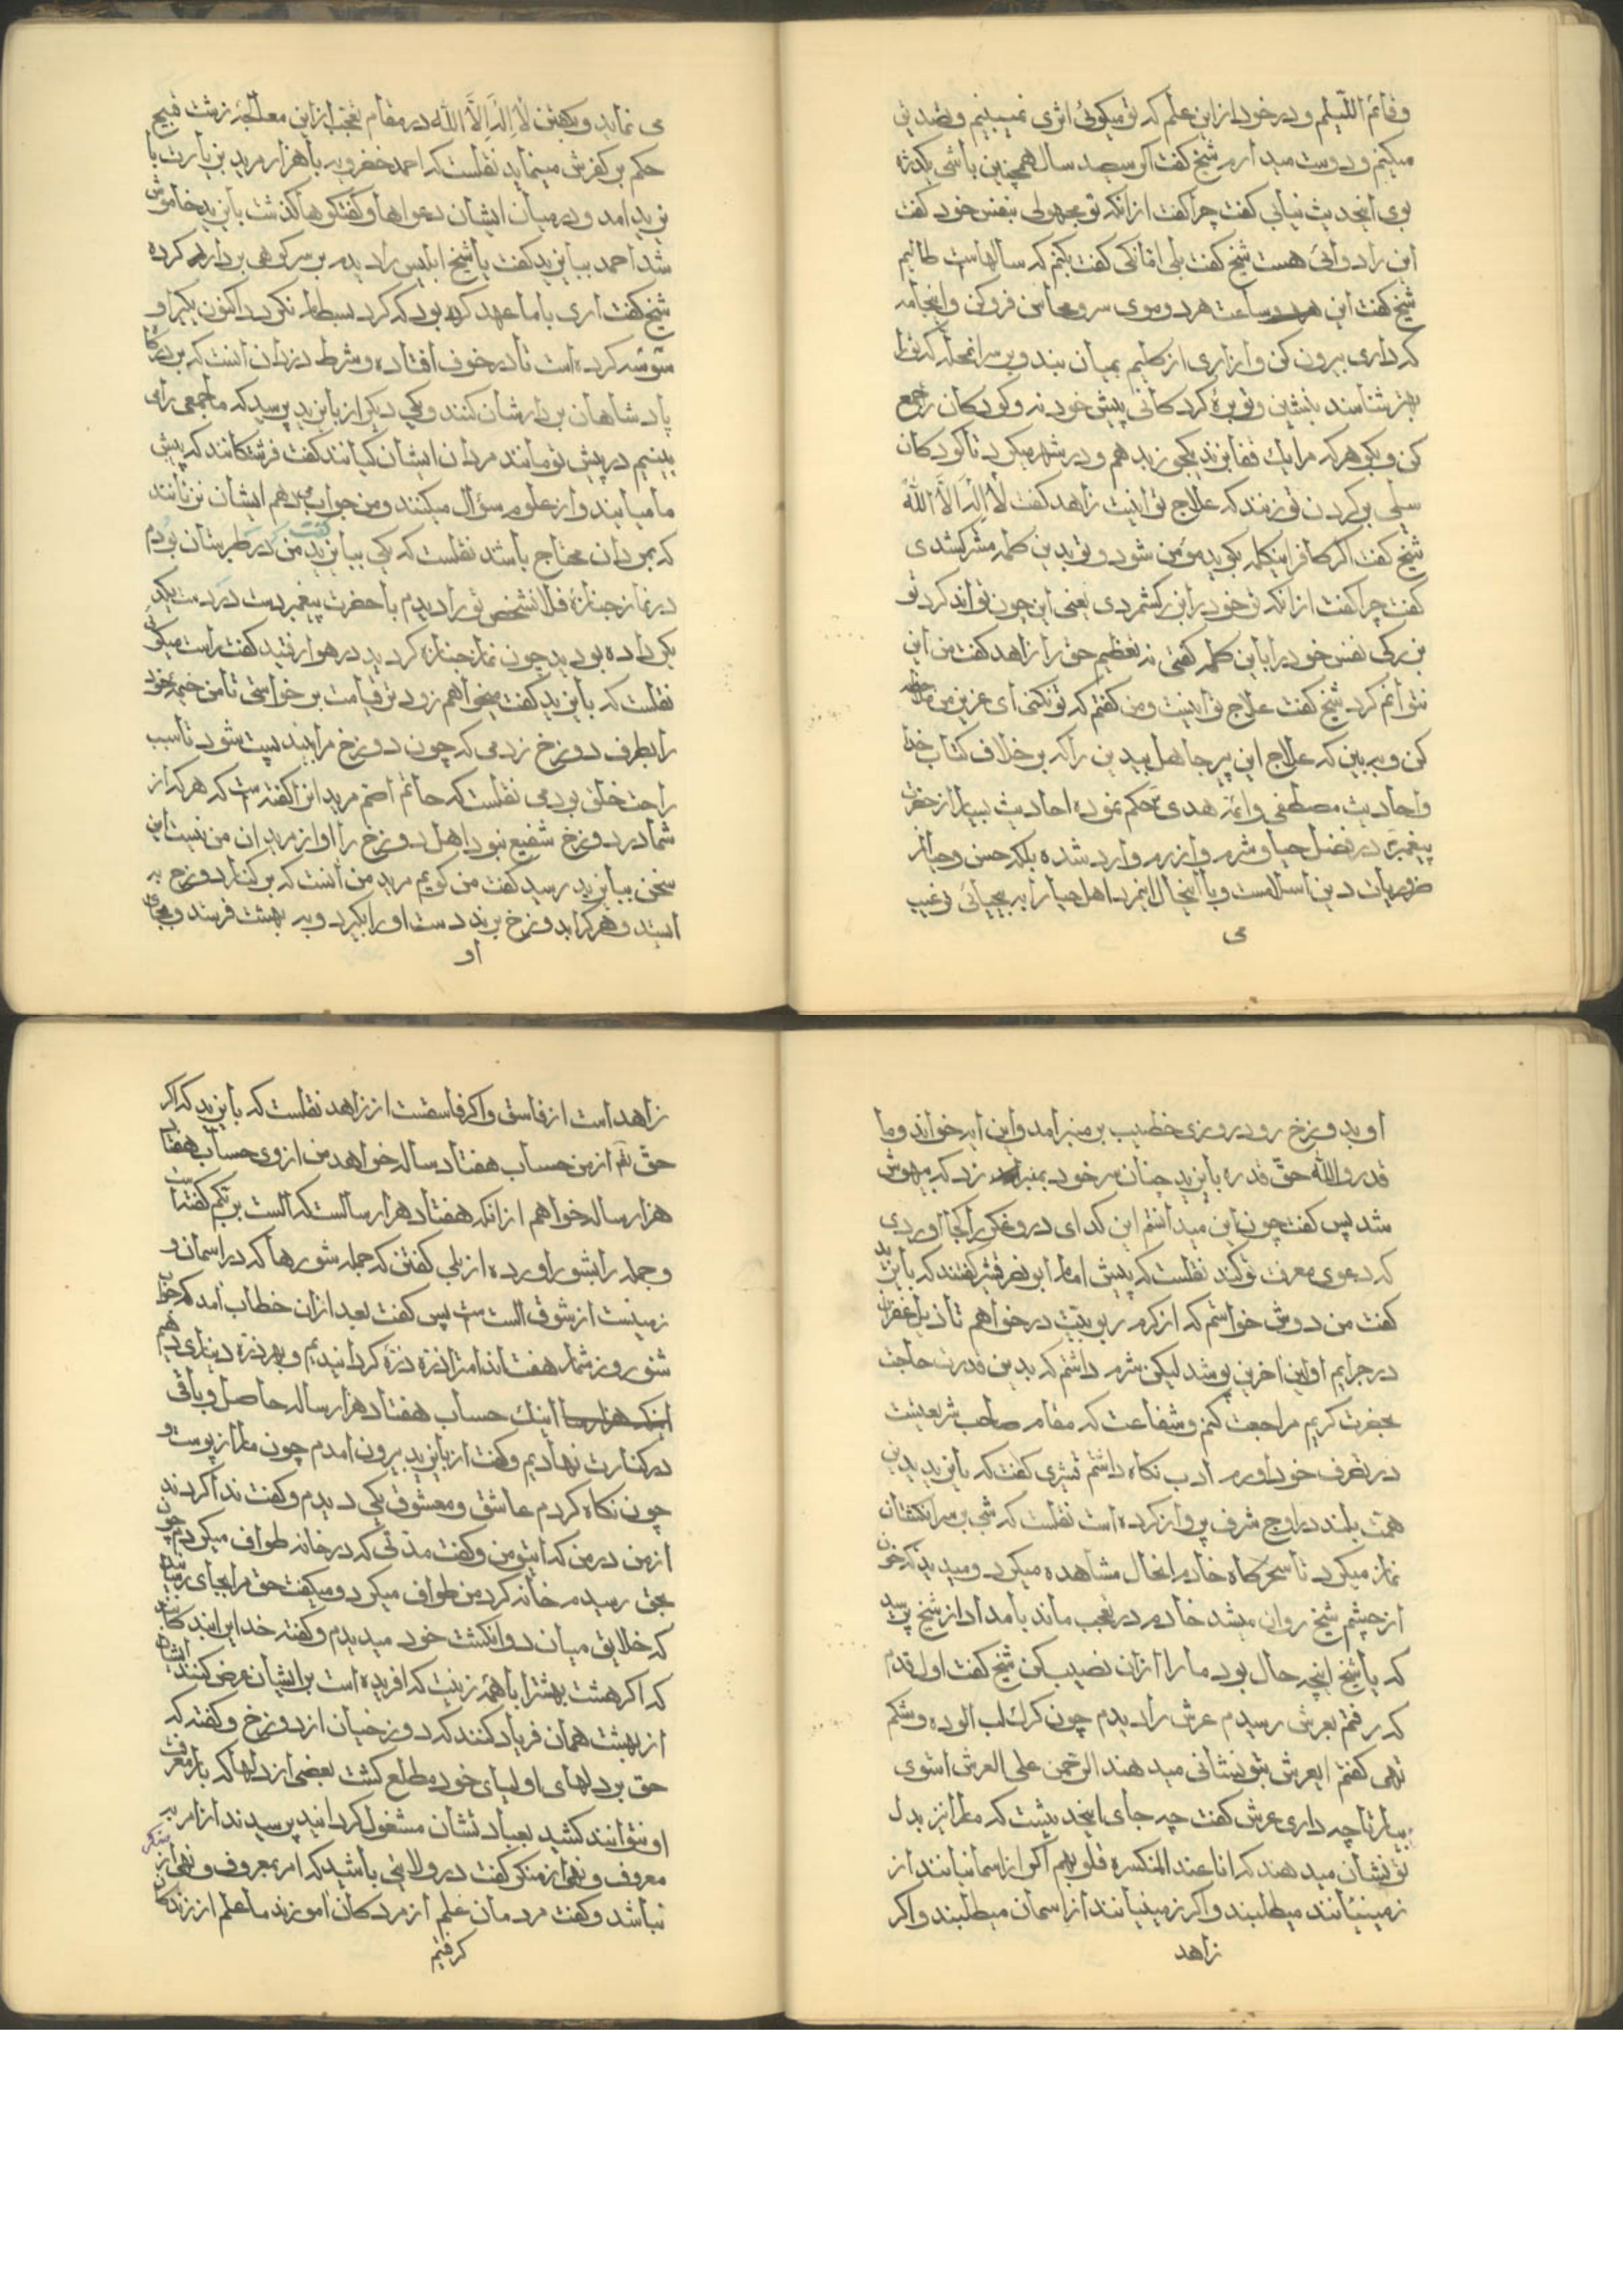 و قائم اللّیلم و در خود ازاین علم که تو میکوئی اثری نمیبینم و تصدیق
میکنم و دوست میدارم شیخ کفت اکر سیصد سال همچنین باشی یکذرّه
بوی اینحدیث نیابی کفت چرا کفت ازانکه تو محجوبی بنفس خود کفت
این را دوائی هست شیخ کفت بلی امّا نکنی کفت بکنم که سالهاست طالبم
شیخ کفت این ساعت هر دو موی سر و محاسن فرو کن و اینجامه
که داری بیرون کن و ازاری از کلیم بمیان بند و بر سر انمحله که ترا
بهتر شناسند بنشین و توبره کردکانی پیش خود نه و کودکان را جمع
کن و بکو هرکه مرا یک قفا بزند یکجوز بدهم و در شهر میکرد تا کودکان
سیلی بر کردن تو زنند که علاج تو اینست زاهد کفت لا اله الّا اللّه
شیخ کفت اکر کافر اینکلمه بکوید مؤمن شود و تو بدین کلمه مشرک شدی
کفت چرا کفت ازانکه تو خود را بزرک شمردی یعنی این چون تواند کرد تو
بزرکی نفس خود را باین کلمه کفتی نه تعظیم حق را زاهد کفت من این
نتوانم کرد شیخ کفت علاج تو اینست و من کفتم که تو نکنی ای عزیز من ملاحظه
کن و ببین که علاج این پیر جاهل بیدین را که بر خلاف کتاب خدا
و احادیث مصطفی و ائمه هدی حکم نموده احادیث بسیار از حضرت
پیغمبر در فضل حیا و شرم و ازرم وارد شده بلکه حسن و حیا از
ضروریات دین اسلامست و با اینحال اینمرد اهل حیا را به بیحیائی ترغیب
می
می نماید و بکفتن لا اله الّا اللّه در مقام تعجب ازاین معالجهٔ زشت قبیح
حکم بر کفرش مینماید نقلست که احمد خضرویه با هزار مرید بزیارت با
یزید امد و در میان ایشان دعواها و کفتکوها کذشت بایزید خاموش
شد احمد ببایزید کفت یا شیخ ابلیس را دیدم بر سر کوهی بر دار کرده
شیخ کفت اری با ما عهد کرده بود که کرد بسطام نکردد اکنون یکیرا و
سوسه کرده است تا در خوف افتاده و شرط دزدان انست که بر درکاه
پادشاهان بر دارشان کنند و یکی دیکر از بایزید پرسید که ما جمعی را می
بینیم در پیش تو مانند مردان ایشان کیانند کفت فرشتکانند که پیش
ما میایند و از علوم سؤال میکنند و من جواب میدهم ایشان نزنانند
که بمردان محتاج باشد نقلست که یکی ببایزید کفت من در طبرستان بودم
در نماز جنازهٔ فلانشخص تو را دیدم با حضرت پیغمبر دست در دست یکدیکر
داده بودید چون نماز جنازه کردید در هوا رفتید کفت راست میکوئی
نقلست که بایزید کفت میخواهم زودتر قیامت برخواستی تا من خیمهٔ خود
را بطرف دوزخ زدمی که چون دوزخ مرا بیند پست شود تا سبب
راحت خلق بودمی نقلست که حاتم اصم مریدانرا کفته است که هرکه از
شما در دوزخ شفیع نبود اهل دوزخ را او از مریدان من نیست این
سخن ببایزید رسید کفت من کویم مرید من انست که بر کنار دوزخ به
ایستد و هرکرا بدوزخ برند دست او را بکیرد و به بهشت فرستد و بجای
او
او بدوزخ رود روزی خطیب بر منبر امد و این ایه خواند و ما
قدروا اللّه حقّ قدره بایزید چنان سر خود بمنبر زد که بیهوش
شد پس کفت چون این میدانستم این کدای دروغکو را کجا اوردی
که دعوی معرفت تو کند نقلست که پیش امام ابو نصر قشیری کفتند که بایزید
کفت من دوش خواستم که از کرم ربوبیّت درخواهم تا ذیل غفران
در جرایم اولین اخرین پوشد لیکن شرم داشتم که بدین قدرت حاجت
بحضرت کریم مراجعت کنم و شفاعت که مقام صاحب شریعتست
در تصرف خود اورم ادب نکاه داشتم قشیری کفت که بایزید بدین
همّت بلند در اوج شرف پرواز کرده است نقلست که شبی بر سر انکشتان
نماز میکرد تا سحرکاه خادم انحال مشاهده میکرد و میدید که خون
از چشم شیخ روان میشد خادم در تعجب ماند بامداد از شیخ پرسید
که یا شیخ اینچه حال بود ما را ازان نصیب کن شیخ کفت اول قدم
که رفتم بعرش رسیدم عرش را دیدم چون کرک لب الوده و شکم
تهی کفتم ایعرش بتو نشانی میدهند الرّحمن علی العرش استوی
بیار تا چه داری عرش کفت چه جای اینحدیثست که ما را نیز بدل
تو نشان میدهند که انا عند المنکسره قلوبهم اکر از اسمانیانند از
زمینیانند میطلبند و اکر زمینیانند از اسمان میطلبند و اکر
زاهد
زاهد است از فاسق و اکر فاسقست از زاهد نقلست که بایزید که اکر
حق تم از من حساب هفتاد ساله خواهد من از وی حساب هفتاد
هزار ساله خواهم ازانکه هفتاد هزار سالست که الست بربّکم کفته است
و جمله را بشور اورده از بلی کفتن که جمله شورها که در اسمان و
زمینست از شوق الست است پس کفت بعد ازان خطاب امد که جواب
شنو روز شمار هفت اندامت را ذرّه ذرّه کردانیدیم و بهر ذرّه دیناری دهیم
اینک حساب هفتاد هزار ساله حاصل و باقی
در کنارت نهادیم و کفت از بایزید بیرون امدم چون مار از پوست و
چون نکاه کردم عاشق و معشوق یکی دیدم و کفت ندا کردند
از من در من که ایتو من و کفت مدّتی که در خانه طواف میکردم چون
بحق رسیدم خانه کرد من طواف میکرد و میکفت حق مرا بجای رسانید
که خلایق میان دو انکشت خود میدیدم و کفته خدایرا بندکانند
که اکر هشت بهشترا با همه زینت که افریده است بر ایشان عرض کنند ایشان
از بهشت همان فریاد کنند که دوزخیان از دوزخ و کفته که
حق بر دلهای اولیای خود مطلع کشت بعضی از دلها که بار معرفت
او نتوانند کشید بعبادتشان مشغول کردانید پرسیدند از امر به
معروف و نهی از منکر کفت در ولایتی باشید که امر بمعروف و نهی از منکر
نباشد و کفت مردمان علم از مردکان اموزند ما علم از زندکان
کرفتیم